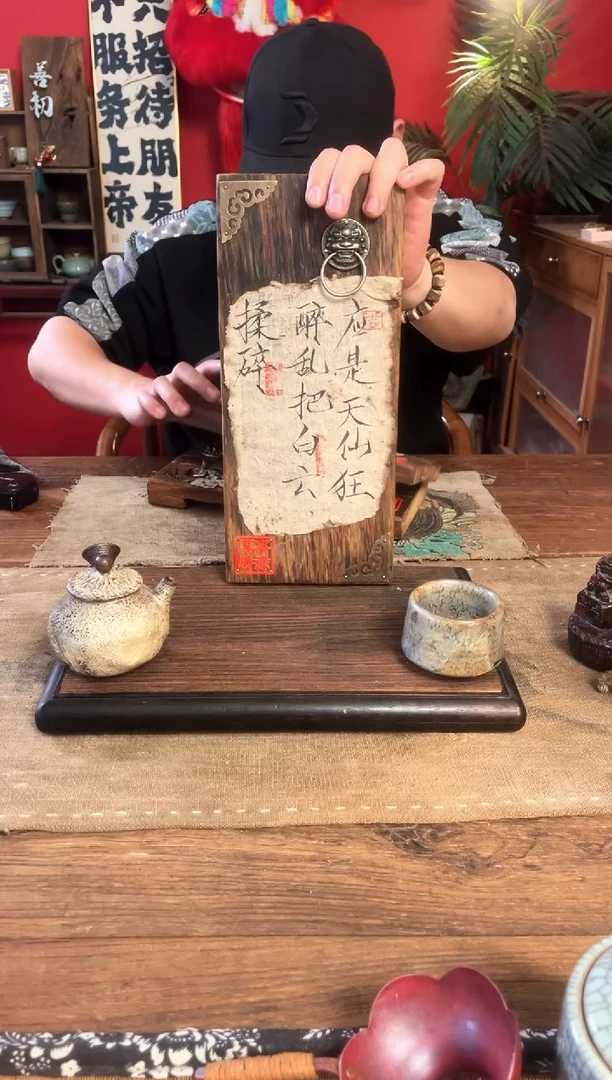 应是天仙狂
醉乱把白云
揉碎
招待朋友
不服务上帝
善初